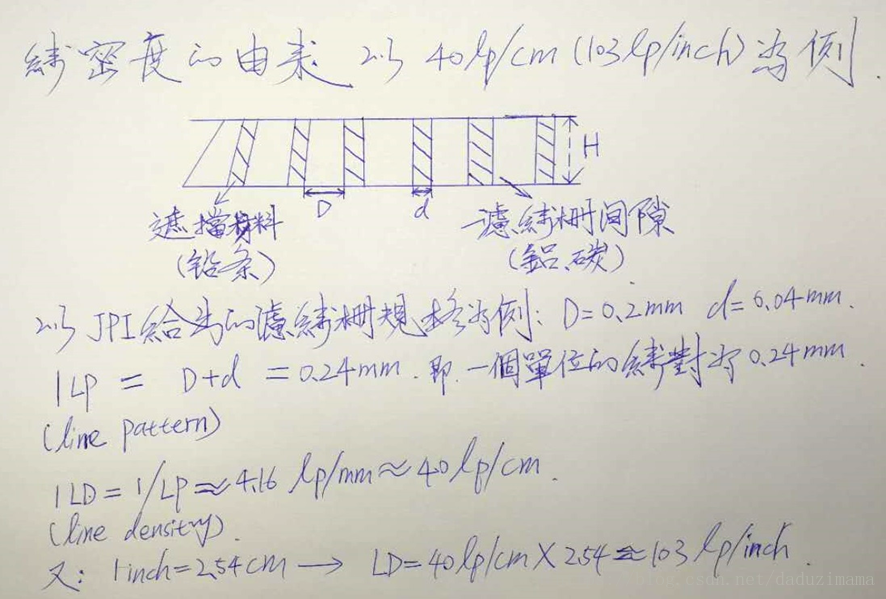 綫密度的由来 以 40 lp/cm (103 lp/inch) 为例
H
D
d
遮擋材料
(铅条)
濾綫柵间隙
(鋁、碳)
以 JPI 給出的濾綫柵規格为例: D=0.2mm d=0.04mm.
1LP = D+d = 0.24mm. 即. 一個單位的綫對为 0.24mm.
(line pattern)
1LD = 1/LP ≈ 4.16 lp/mm ≈ 40 lp/cm.
(line density).
又: 1inch=2.54cm → LD=40 lp/cm X 2.54 ≈ 103 lp/inch.
blog.csdn.net/daduzimama